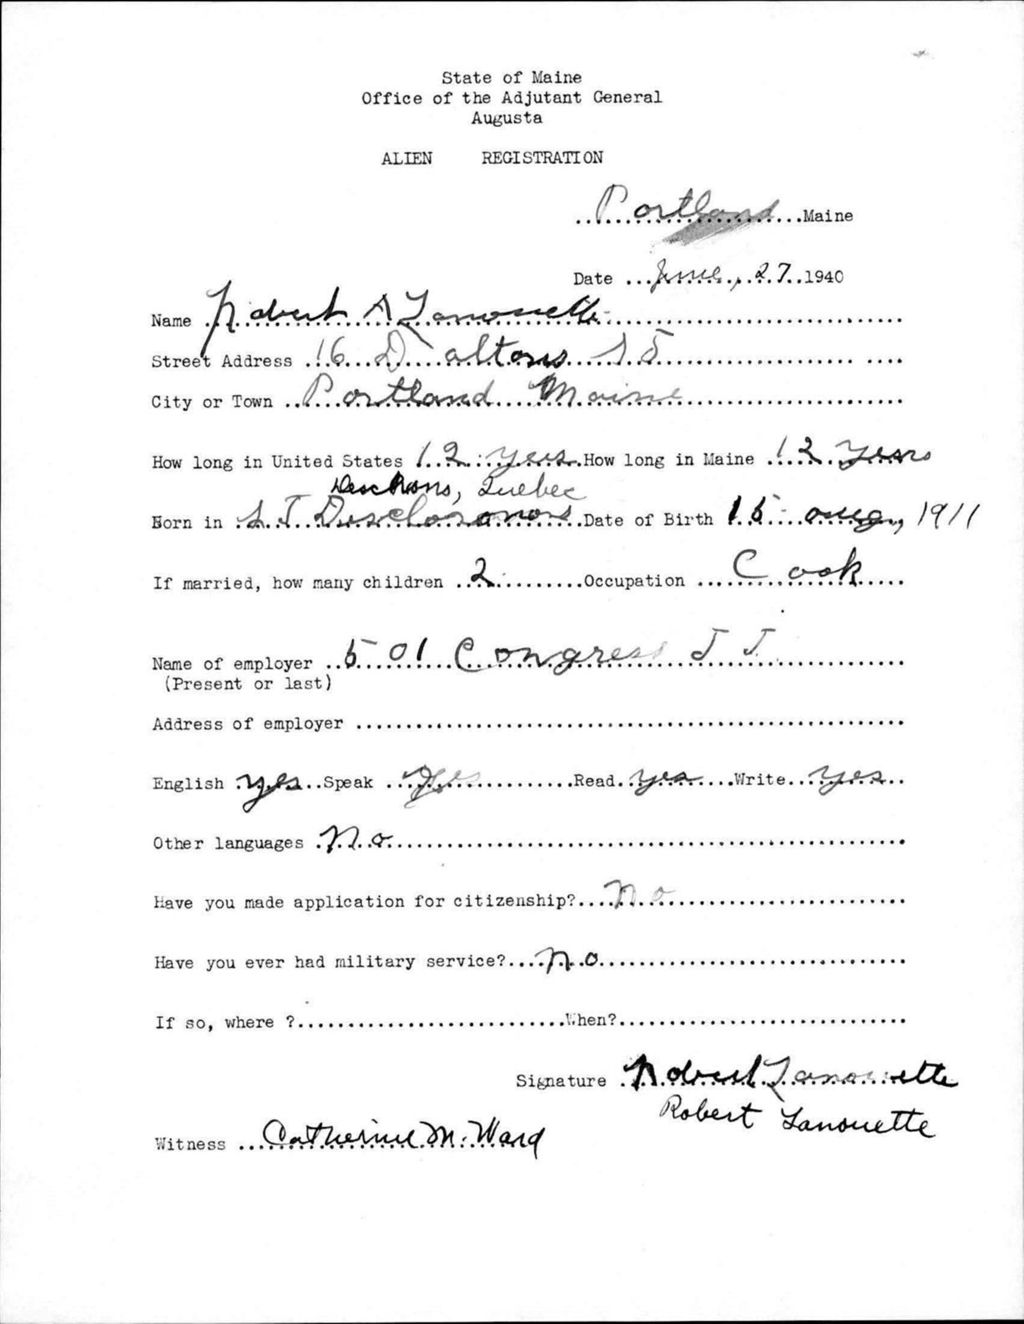 State of Maine
Office of the Adjutant General
Augusta
ALIEN REGISTRATION
Portland Maine
Date June, 27 1940
Name Robert A Lanouette
Street Address 16 D altons St
City or Town Portland Maine
How long in United States 12 yers How long in Maine 12 Years
Deschons, Quebec
Born in St Date of Birth 15 aug, 1911
If married, how many children 2 Occupation Cook
Name of employer 501 Congress St
(Present or last)
Address of employer
English yes Speak Yes Read yes Write yes
Other languages No
Have you made application for citizenship? No
Have you ever had military service? No
If so, where ? When?
Signature Robert Lanouette
Robert Lanouette
Witness Catherine M. Ward